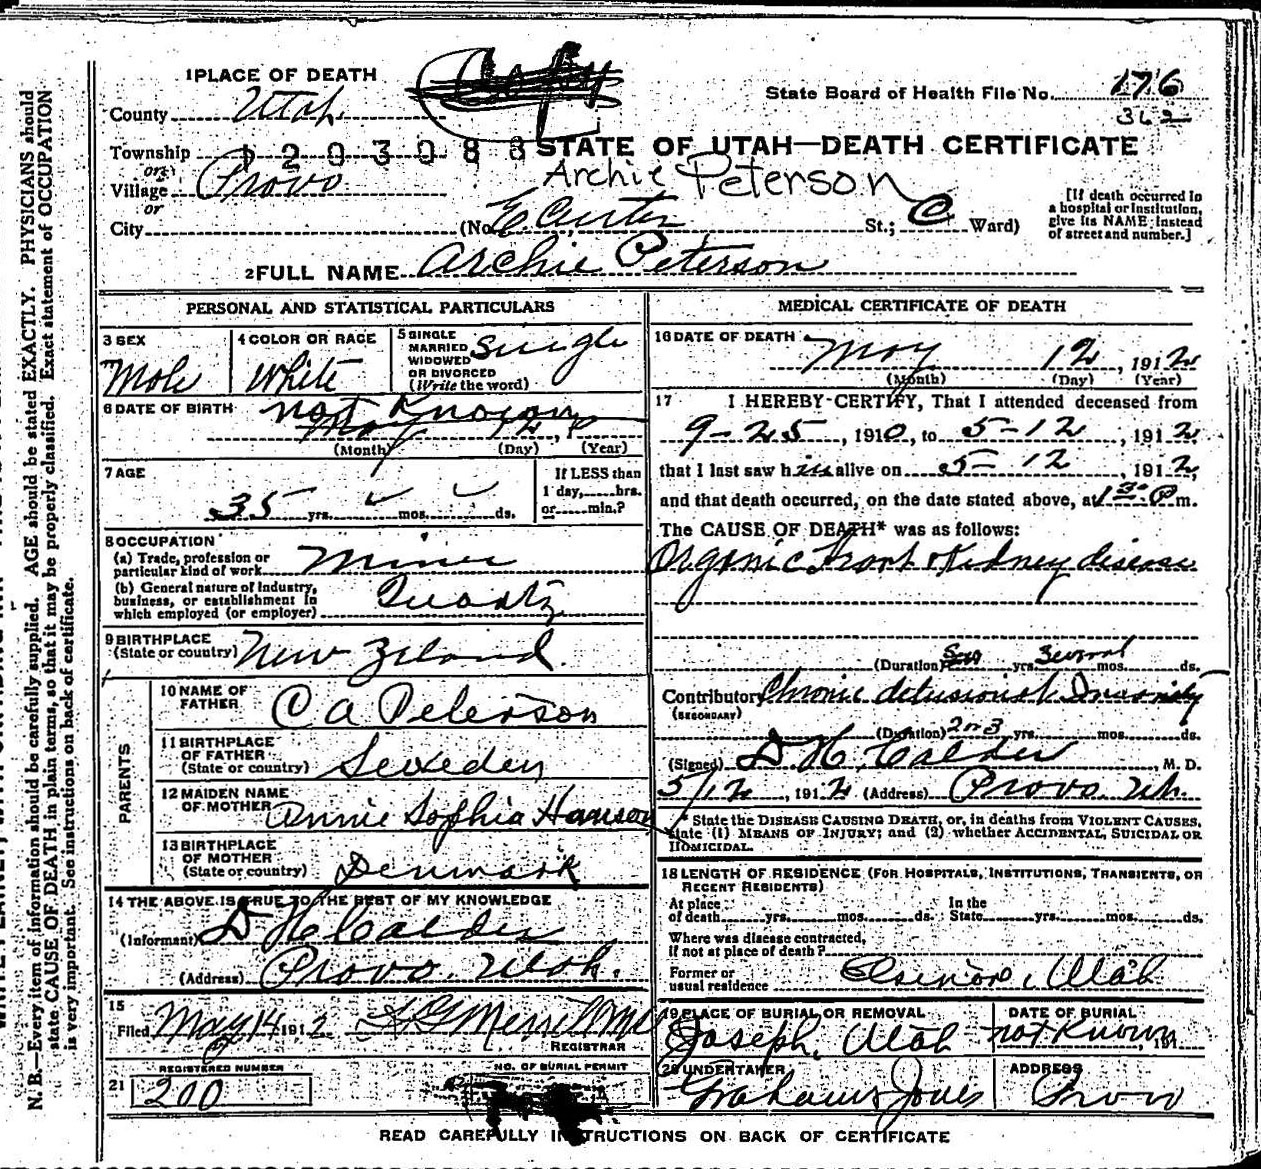 1 PLACE OF DEATH
Copy
State Board of Health File No. 176
362
County Utah
Township 1 2 0 3 0 8 8
STATE OF UTAH—DEATH CERTIFICATE
or
Village Provo
Archie Peterson
or
City (No. St.; Ward)
[If death occurred in a hospital or institution, give its NAME instead of street and number.]
2 FULL NAME Archie Peterson
PERSONAL AND STATISTICAL PARTICULARS
3 SEX Male
4 COLOR OR RACE White
5 SINGLE MARRIED WIDOWED OR DIVORCED (Write the word) Single
6 DATE OF BIRTH not Known
May 12
(Month) (Day) (Year)
7 AGE
35 yrs. mos. ds.
If LESS than 1 day, hrs. or min.?
8 OCCUPATION
(a) Trade, profession or particular kind of work Miner
(b) General nature of industry, business, or establishment in which employed (or employer) Quartz
9 BIRTHPLACE (State or country) New Zeland
PARENTS
10 NAME OF FATHER C A Peterson
11 BIRTHPLACE OF FATHER (State or country) Sweden
12 MAIDEN NAME OF MOTHER Annie Sophia Hanson
13 BIRTHPLACE OF MOTHER (State or country) Denmark
14 THE ABOVE IS TRUE TO THE BEST OF MY KNOWLEDGE
(Informant) D H Calder
(Address) Provo Utah.
15
Filed May 14 1912
REGISTRAR
REGISTERED NUMBER
NO. OF BURIAL PERMIT
21 200
MEDICAL CERTIFICATE OF DEATH
16 DATE OF DEATH
May 12, 1912
(Month) (Day) (Year)
17 I HEREBY CERTIFY, That I attended deceased from
9-25, 1910, to 5-12, 1912
that I last saw him alive on 5-12, 1912,
and that death occurred, on the date stated above, at 1 30 P m.
The CAUSE OF DEATH* was as follows:
Organic Heart & Kidney disease
(Duration) yrs. Several mos. ds.
Contributory Chronic delusional Insanity
(SECONDARY)
(Duration) 2 or 3 yrs. mos. ds.
(Signed) D H Calder, M. D.
5/12, 1912 (Address) Provo Uh.
* State the DISEASE CAUSING DEATH, or, in deaths from VIOLENT CAUSES, state (1) MEANS OF INJURY; and (2) whether ACCIDENTAL, SUICIDAL OR HOMICIDAL.
18 LENGTH OF RESIDENCE (FOR HOSPITALS, INSTITUTIONS, TRANSIENTS, OR RECENT RESIDENTS)
At place of death yrs. mos. ds. In the State yrs. mos. ds.
Where was disease contracted, if not at place of death?
Former or usual residence Elsinore, Utah
19 PLACE OF BURIAL OR REMOVAL Joseph, Utah
DATE OF BURIAL not Known, 191
20 UNDERTAKER Graham & Jones
ADDRESS Provo
READ CAREFULLY INSTRUCTIONS ON BACK OF CERTIFICATE
N. B.—Every item of information should be carefully supplied. AGE should be stated EXACTLY. PHYSICIANS should
state CAUSE OF DEATH in plain terms, so that it may be properly classified. Exact statement of OCCUPATION
is very important. See instructions on back of certificate.